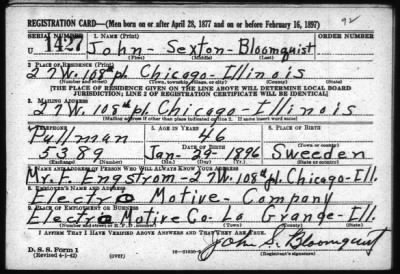 REGISTRATION CARD—(Men born on or after April 28, 1877 and on or before February 16, 1897)
SERIAL NUMBER 1. NAME (Print) ORDER NUMBER
U 1427 John - Sexton - Bloomquist
(First) (Middle) (Last)
2. PLACE OF RESIDENCE (Print)
27 W. 108th pl. Chicago - Illinois
(Number and street) (Town, township, village, or city) (County) (State)
[THE PLACE OF RESIDENCE GIVEN ON THE LINE ABOVE WILL DETERMINE LOCAL BOARD
JURISDICTION; LINE 2 OF REGISTRATION CERTIFICATE WILL BE IDENTICAL]
3. MAILING ADDRESS
27 W. 108th pl. Chicago - Illinois
[Mailing address if other than place indicated on line 2. If same insert word same]
4. TELEPHONE 5. AGE IN YEARS 6. PLACE OF BIRTH
Pullman 46
DATE OF BIRTH (Town or county)
5389 Jan - 29 - 1896 Sweeden
(Exchange) (Number) (Mo.) (Day) (Yr.) (State or country)
7. NAME AND ADDRESS OF PERSON WHO WILL ALWAYS KNOW YOUR ADDRESS
Mr. F. Engstrom - 27 W. 108th pl. Chicago - Ill.
8. EMPLOYER'S NAME AND ADDRESS
Electro Motive - Company
9. PLACE OF EMPLOYMENT OR BUSINESS
Electro Motive Co. La Grange - Ill.
(Number and street or R. F. D. number) (Town) (County) (State)
I AFFIRM THAT I HAVE VERIFIED ABOVE ANSWERS AND THAT THEY ARE TRUE.
D. S. S. Form 1
(Revised 4-1-42) (over) John S. Bloomquist
(Registrant's signature)